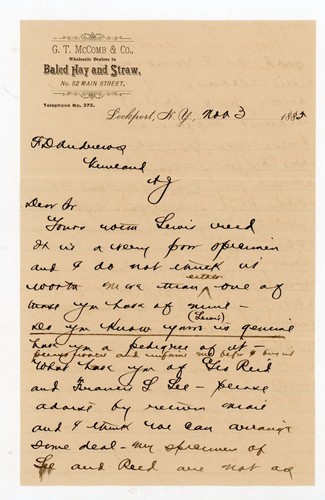 G. T. McComb & Co.,
Wholesale Dealers in
Baled Hay and Straw,
No. 52 MAIN STREET,
Telephone No. 372.
Lockport, N.Y., Nov 3 1885
F D Andrews
Vineland
NJ
Dear Sir
Yours with Lewis recd
It is a very poor specimen
and I do not think it
either
worth more than one of
those you have of mine -
(Lewis)
Do you know yours is genuine
have you a pedigree of it -
please and inform me before I
What have you of Geo Reid
and Francis L Lee - please
advise by return mail
and I think we can arrange
some deal - my specimen of
Lee and Reed are not as